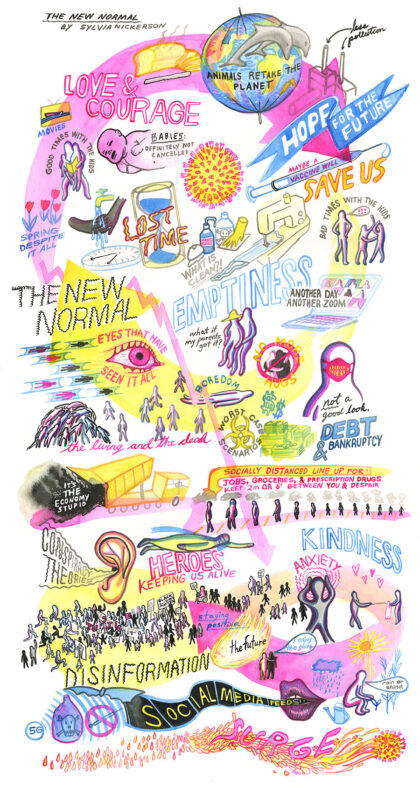 THE NEW NORMAL
BY SYLVIA NICKERSON
less
pollution
ANIMALS RETAKE THE
PLANET
LOVE &
COURAGE
HOPE
FOR THE
FUTURE
MOVIES
BABIES:
DEFINITELY NOT
CANCELLED
GOOD TIMES WITH THE KIDS
MAYBE A
VACCINE WILL
SAVE US
BAD TIMES WITH THE KIDS
SPRING
DESPITE
IT ALL
LOST
TIME
WHAT IS
CLEAN?!
EMPTINESS
ANOTHER DAY
ANOTHER ZOOM
THE NEW
NORMAL
EYES THAT HAVE
SEEN IT ALL
what if
my parents
get it?
NO MORE
HUGS
BOREDOM
not a
good look.
WORST CASE
SCENARIOS
DEBT
& BANKRUPTCY
the living and the dead
IT'S
THE
ECONOMY
STUPID
SOCIALLY DISTANCED LINE UP FOR:
JOBS, GROCERIES, & PRESCRIPTION DRUGS
KEEP 2m OR 6' BETWEEN YOU & DESPAIR
CONSPIRACY
THEORIES
HEROES
KEEPING US ALIVE
KINDNESS
ANXIETY
staying
positive
the future
DISINFORMATION
SOCIAL MEDIA FEEDS
rain or
shine
5G
SURGE